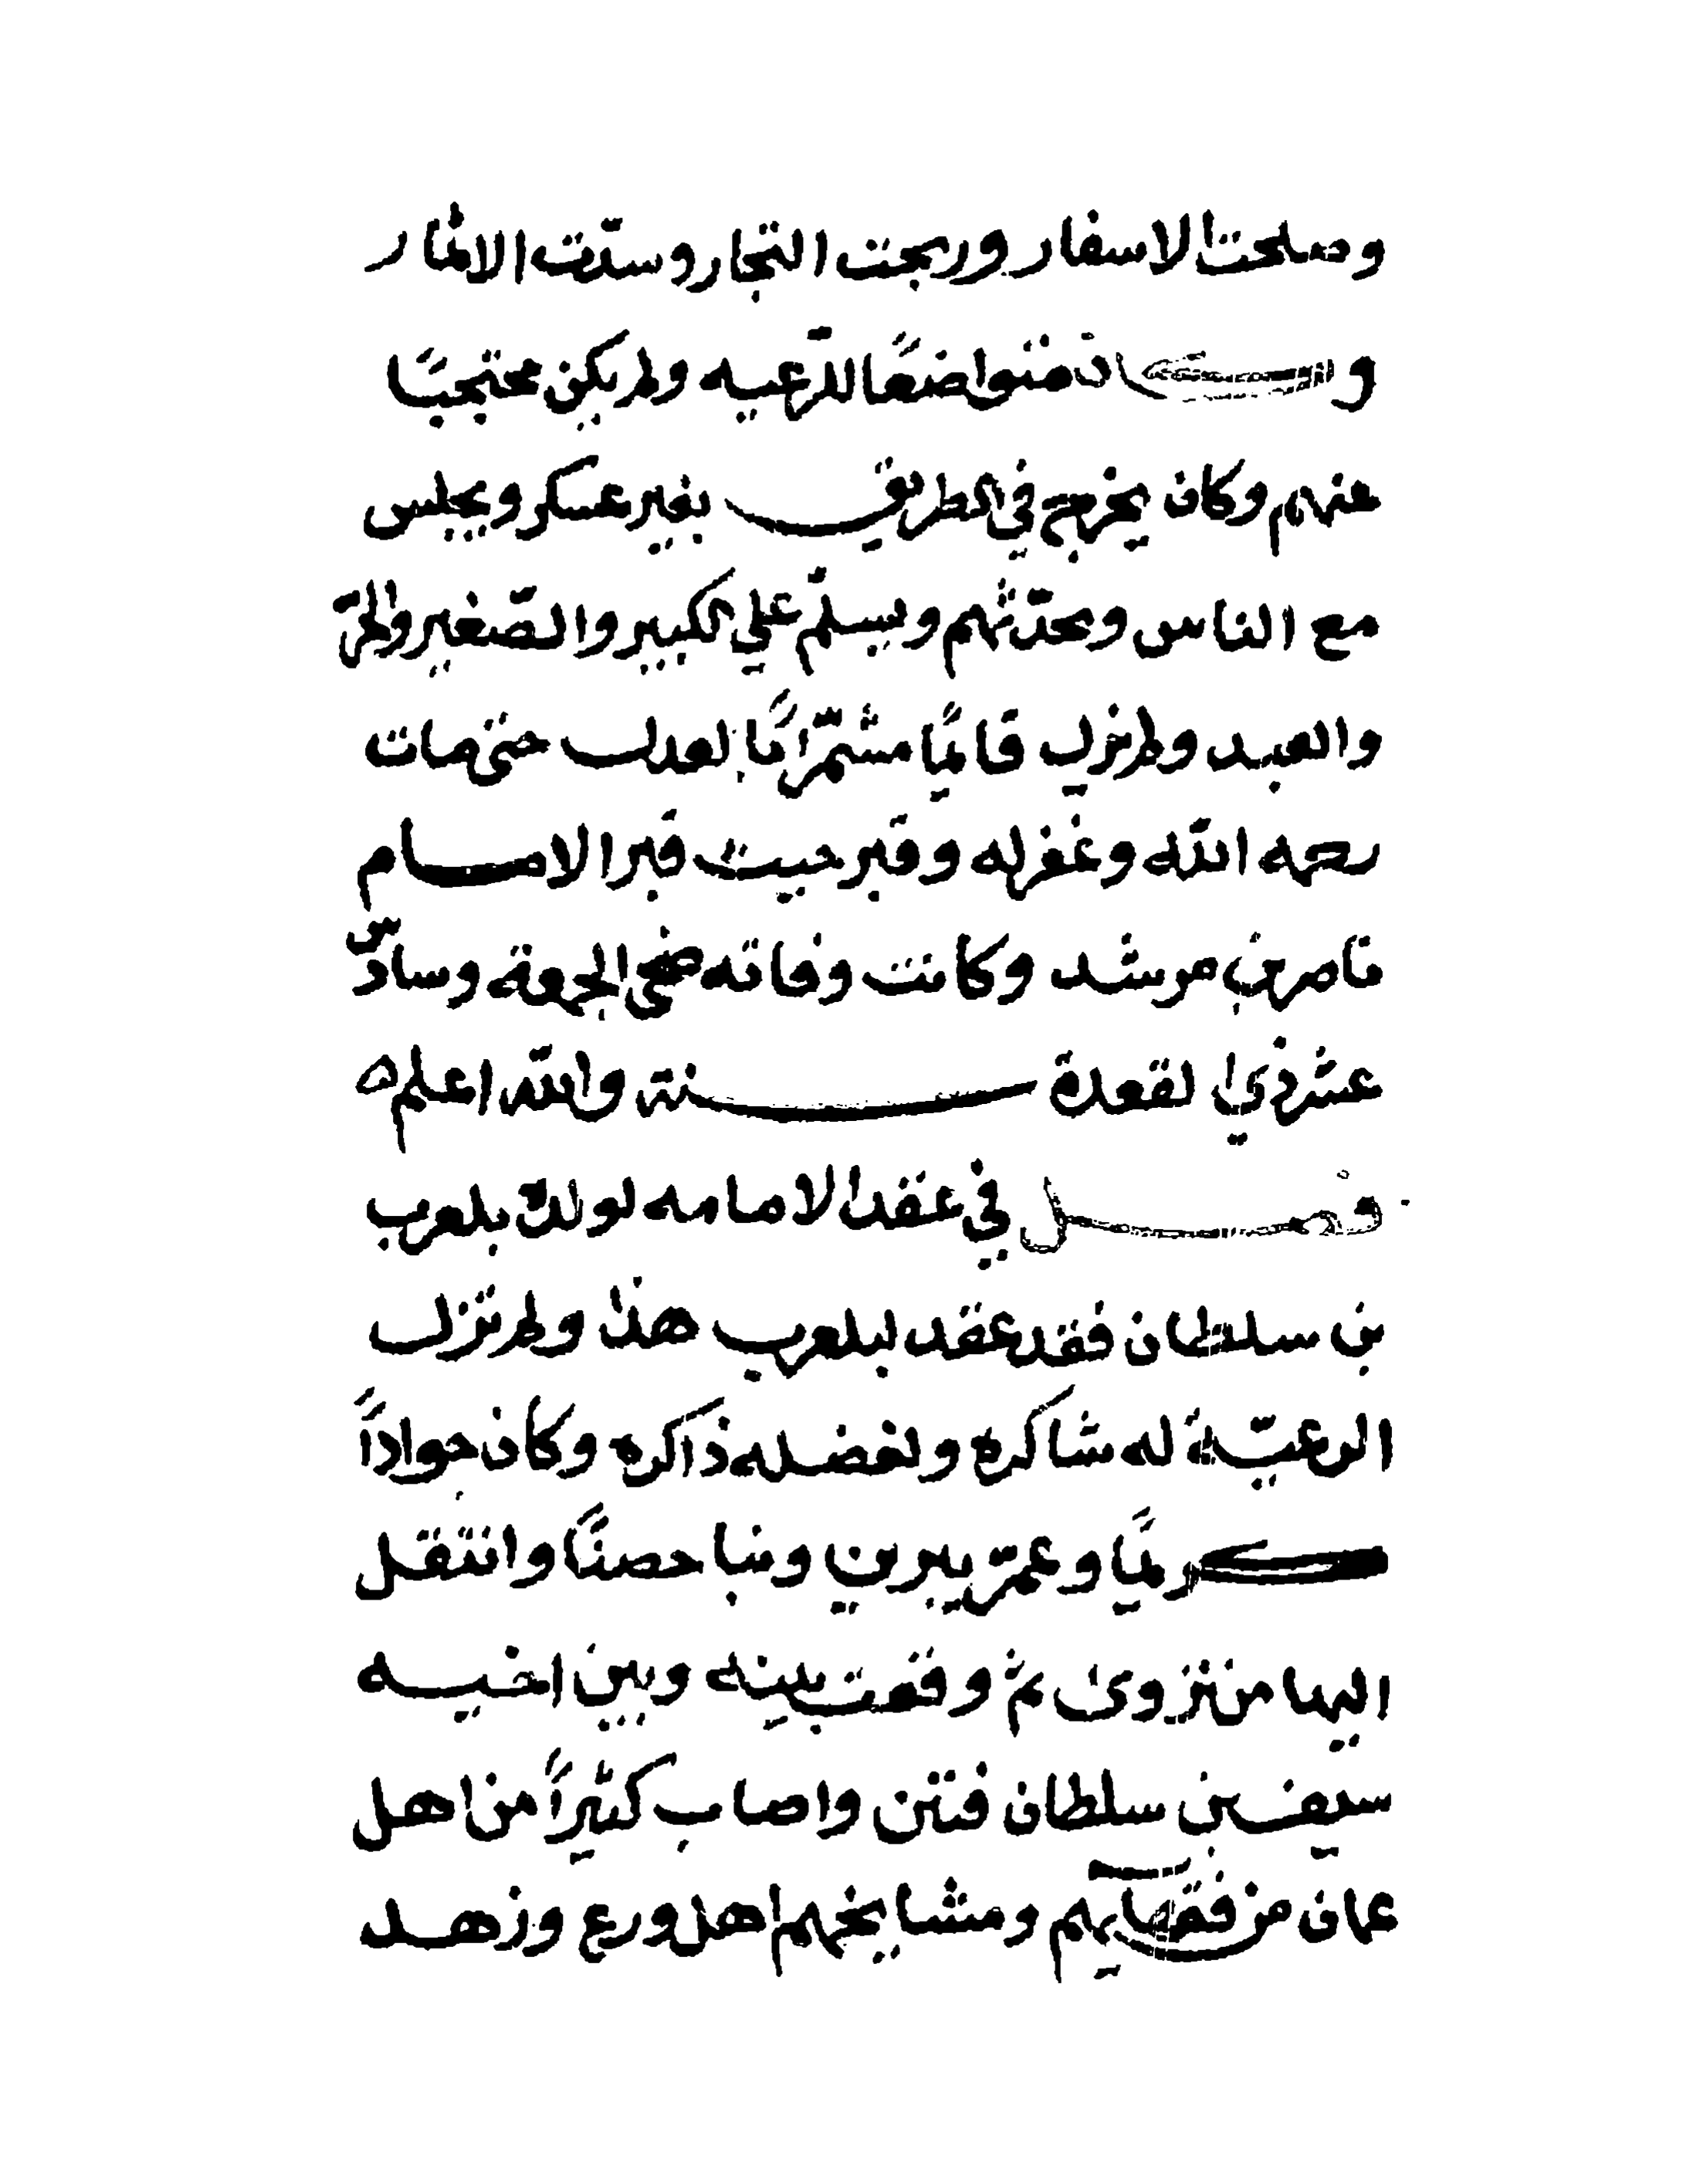 وصلحت الاسفار وربحت التجار وسدّت الاثمار
وكان متواضعًا للرّعيه ولم يكن محتجبًا
عنهم وكان يخرج في الطريق بغير عسكر ويجلس
مع الناس ويحدّثهم ويسلّم علي الكبير والصّغير والحرّ
والعبد ولم يزل قايمًا مشمّرًا بالعدل حتى مات
رحمه الله وغفر له وقبر حيث قبر الامام
ناصر بن مرشد وكانت وفاته ضحى الجمعة وسادس
عشر ذي القعدة سنة والله اعلم ه
فصل في عقد الامامه لولده بلعرب
بن سلطان فقد عقد لبلعرب هذا ولم تزل
الرعيّة له شاكره ولفضله ذاكره وكان جوادًا
كريمًا وعمّر يبرين وبنا حصنًا وانتقل
اليها من نزوى ثم وقعت بينه وبين اخيه
سيف بن سلطان فتن واصاب كثيرًا من اهل
عمان من فقهايهم ومشايخهم اهل ورع وزهد